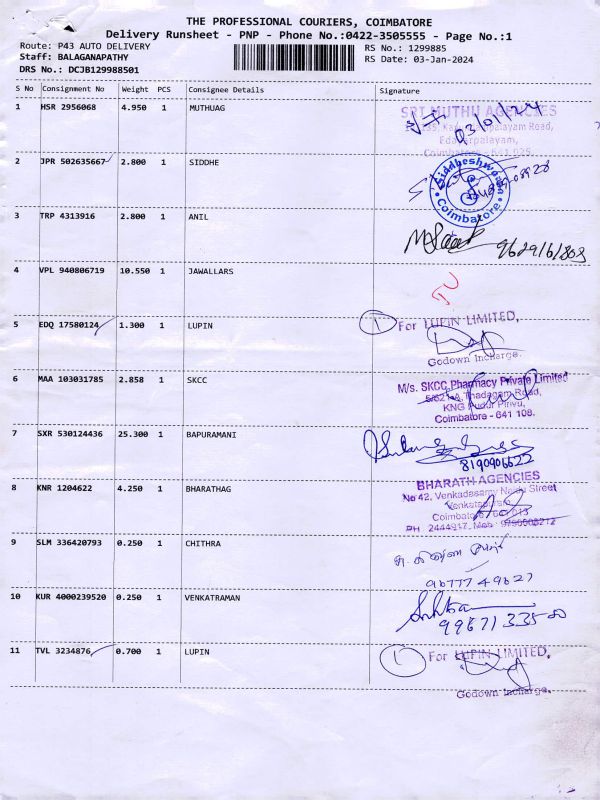 THE PROFESSIONAL COURIERS, COIMBATORE
Delivery Runsheet - PNP - Phone No.:0422-3505555 - Page No.:1
Route: P43 AUTO DELIVERY
Staff: BALAGANAPATHY
DRS No.: DCJB129988501
RS No.: 1299885
RS Date: 03-Jan-2024
S No Consignment No Weight PCS Consignee Details Signature
1 HSR 2956068 4.950 1 MUTHUAG
SRI MUTHU AGENCIES
03/01/24
2 JPR 502635667 2.800 1 SIDDHE
Siddheshwora
Coimbatore
3 TRP 4313916 2.800 1 ANIL
4 VPL 940806719 10.550 1 JAWALLARS
5 EDQ 17580124 1.300 1 LUPIN
1 For LUPIN LIMITED,
Godown Incharge.
6 MAA 103031785 2.858 1 SKCC
M/s. SKCC Pharmacy Private Limited
Thadagam Road,
KNG Pudur Pirivu,
Coimbatore - 641 108.
7 SXR 530124436 25.300 1 BAPURAMANI
8190906622
8 KNR 1204622 4.250 1 BHARATHAG
BHARATH AGENCIES
No 42, Venkadasamy Naidu Street
9 SLM 336420793 0.250 1 CHITHRA
96777 49627
10 KUR 4000239520 0.250 1 VENKATRAMAN
11 TVL 3234876 0.700 1 LUPIN
1 For LUPIN LIMITED,
Godown Incharge.